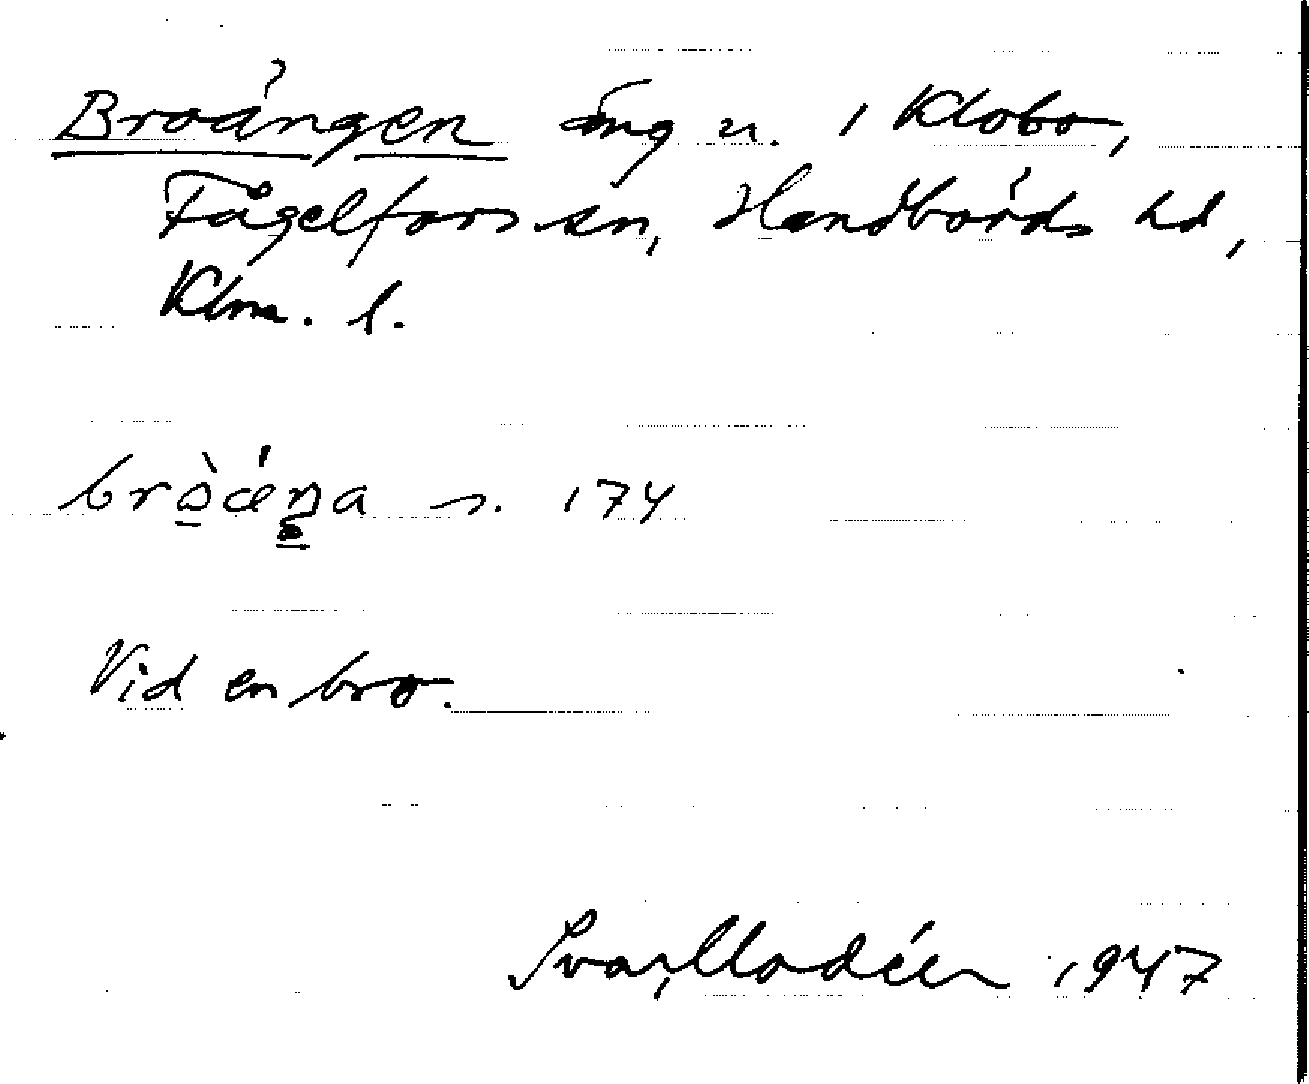 Broängen äng n. i Klobo,
Fågelfors sn, Handbörds hd,
Klm. l.
bròæŋa s. 174
Vid en bro.
1947